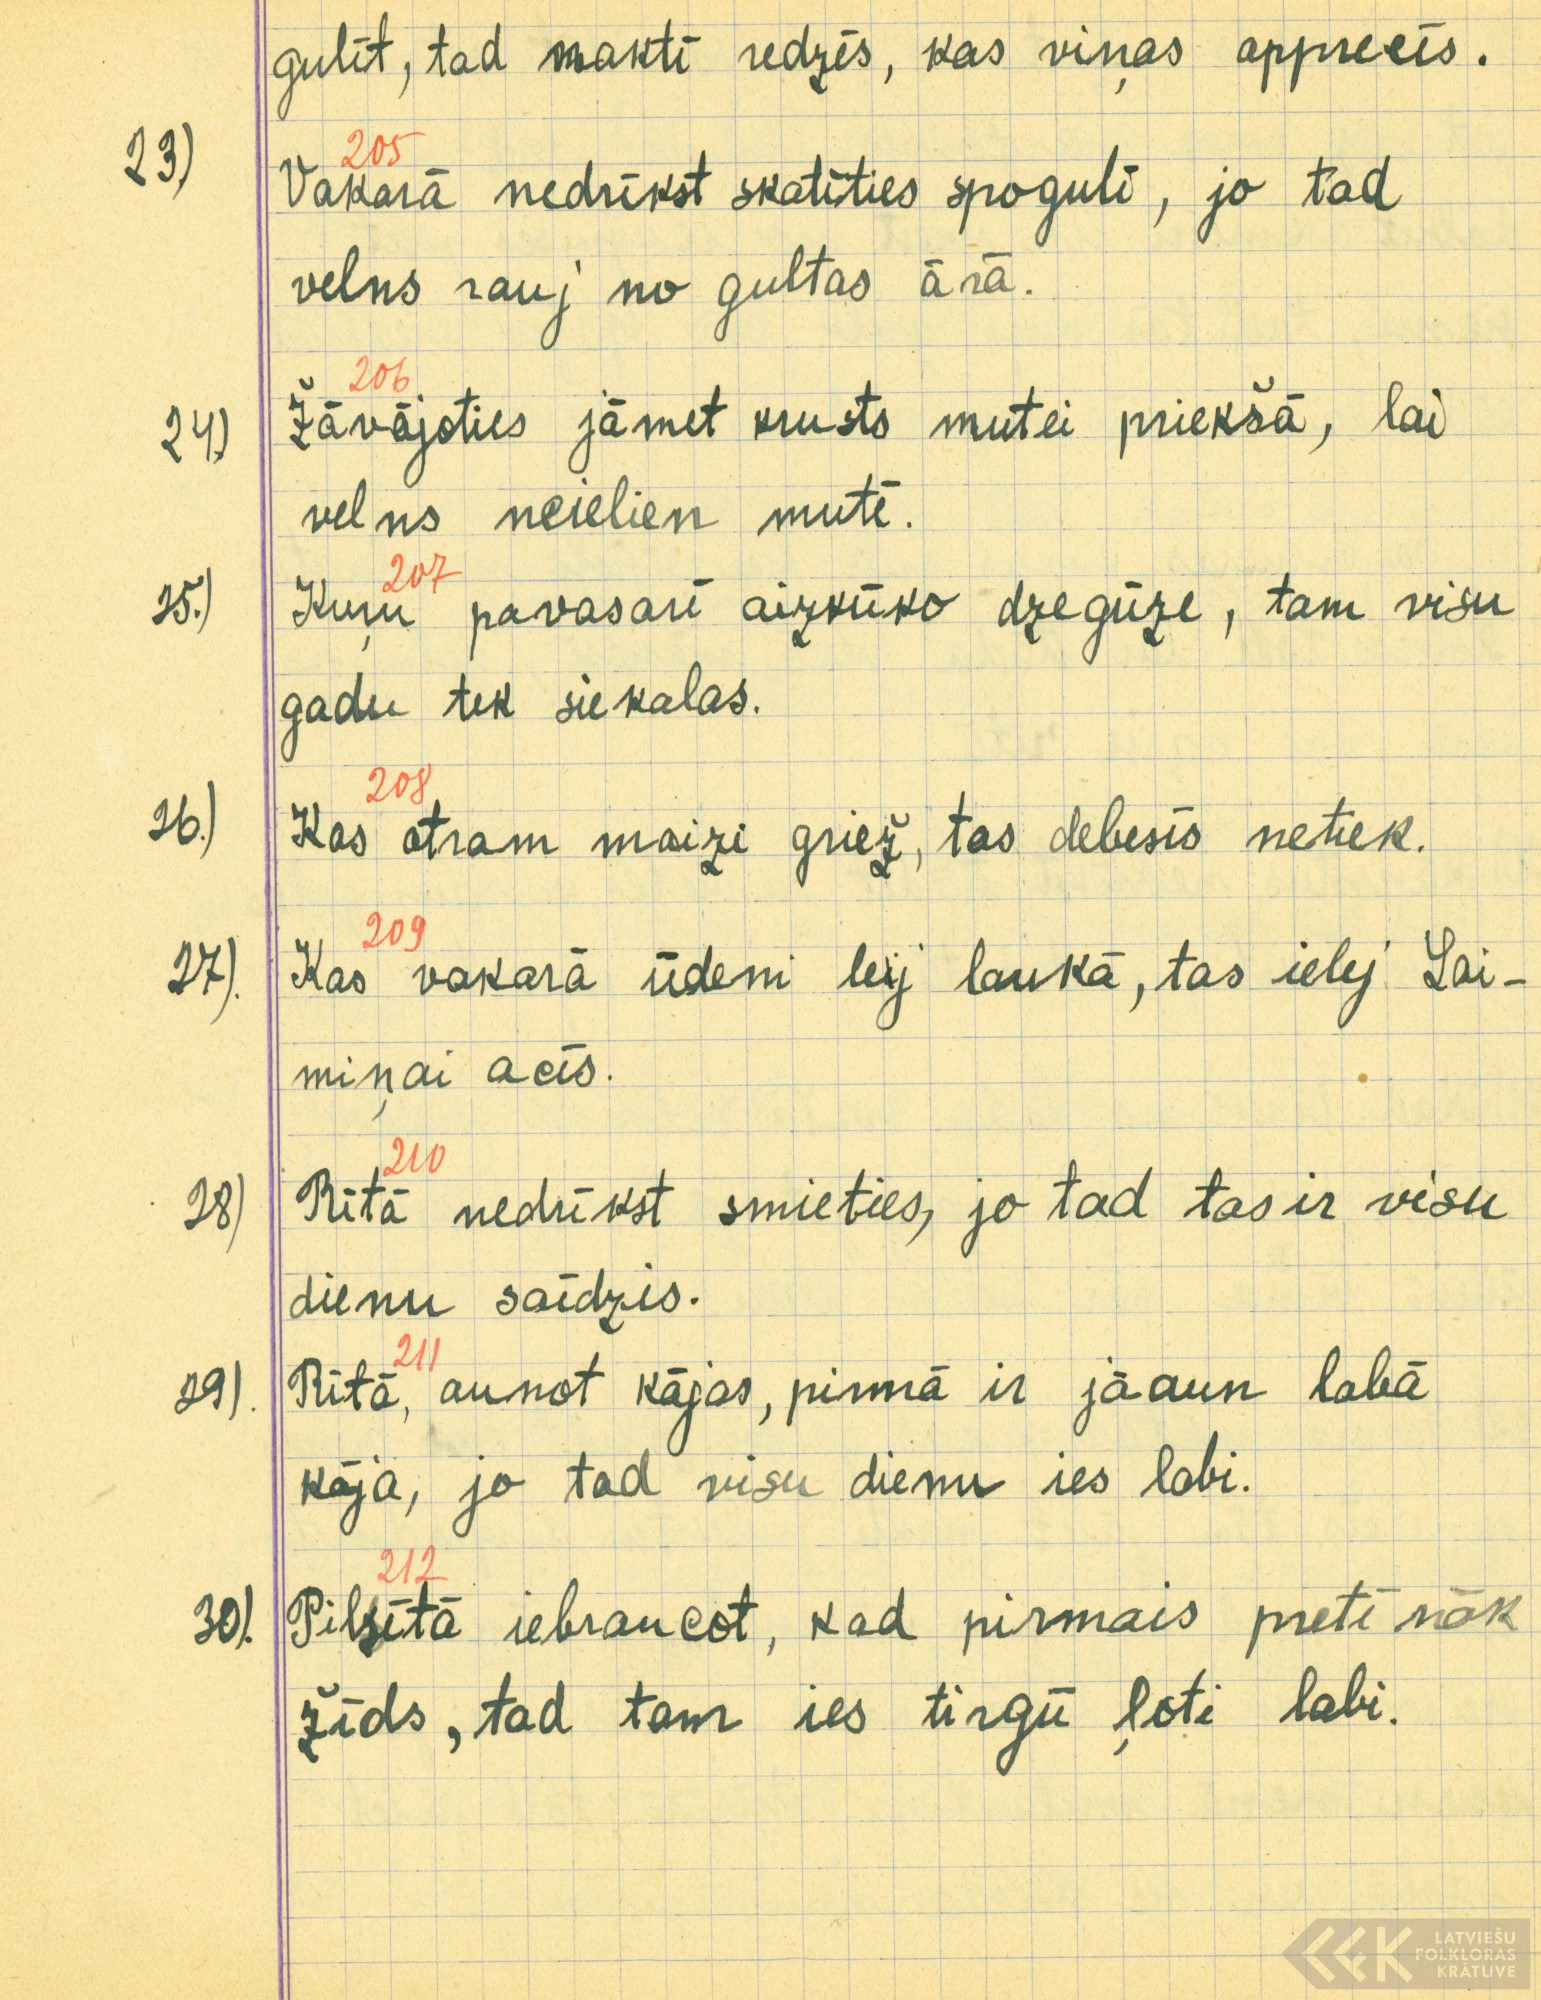 gulīt, tad naktī redzēs, kas viņas apprecēs.
205
23) Vakarā nedrīkst skatīties spogulī, jo tad
velns rauj no gultas ārā.
206
24) Žāvājoties jāmet krusts mutei priekšā, lai
velns neielien mutē.
207
25.) Kuŗu pavasarī aizkūko dzegūze, tam visu
gadu tek siekalas.
208
26.) Kas otram maizi griež, tas debesīs netiek.
209
27). Kas vakarā ūdeni leij laukā, tas ielej Lai-
miņai acīs.
210
28) Rītā nedrīkst smieties, jo tad tas ir visu
dienu saīdzis.
211
29). Rītā, aunot kājas, pirmā ir jāaun labā
kāja, jo tad visu dienu ies labi.
212
30). Pilsētā iebraucot, kad pirmais pretī nāk
žīds, tad tam ies tirgū ļoti labi.
LATVIEŠU
FOLKLORAS
KRĀTUVE